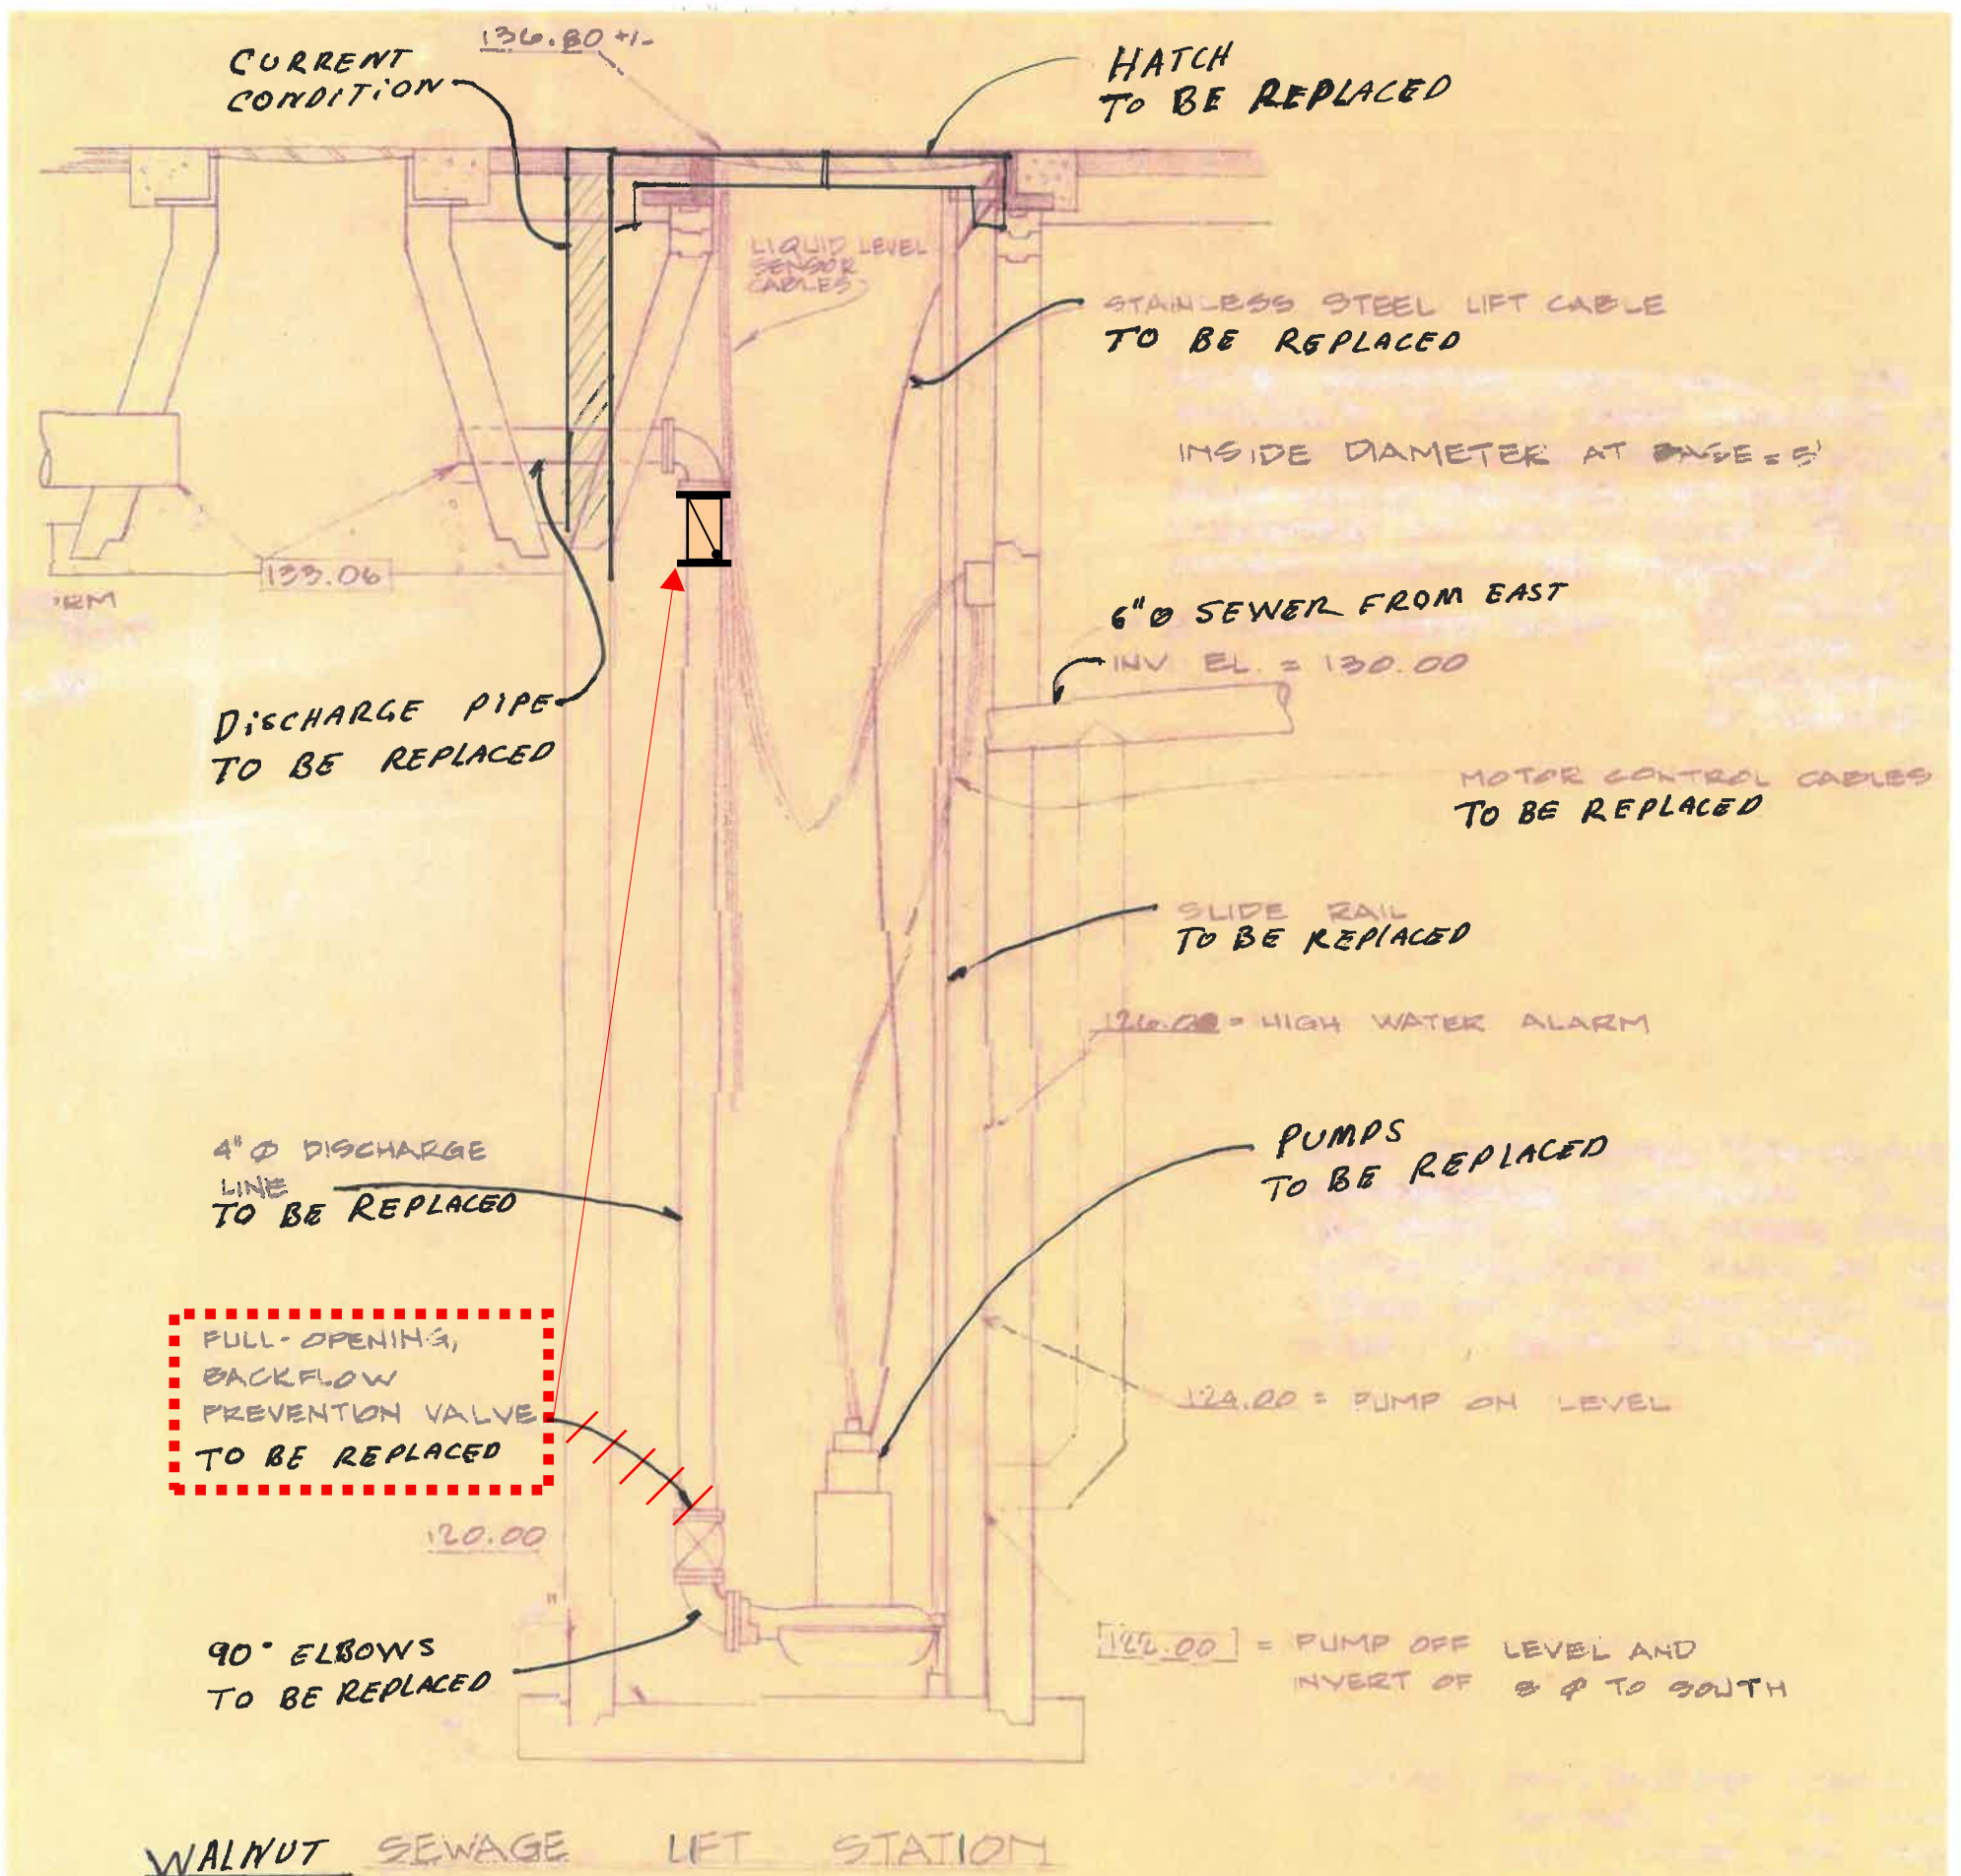 136.80 +/-
CURRENT
CONDITION
HATCH
TO BE REPLACED
LIQUID LEVEL
SENSOR
CABLES
STAINLESS STEEL LIFT CABLE
TO BE REPLACED
INSIDE DIAMETER AT BASE = 5'
133.06
RM
6"Ø SEWER FROM EAST
INV EL. = 130.00
DISCHARGE PIPE
TO BE REPLACED
MOTOR CONTROL CABLES
TO BE REPLACED
SLIDE RAIL
TO BE REPLACED
126.00 = HIGH WATER ALARM
4"Ø DISCHARGE
LINE
TO BE REPLACED
PUMPS
TO BE REPLACED
FULL-OPENING,
BACKFLOW
PREVENTION VALVE
TO BE REPLACED
124.00 = PUMP ON LEVEL
120.00
90° ELBOWS
TO BE REPLACED
122.00 = PUMP OFF LEVEL AND
INVERT OF 8 Ø TO SOUTH
WALNUT SEWAGE LIFT STATION